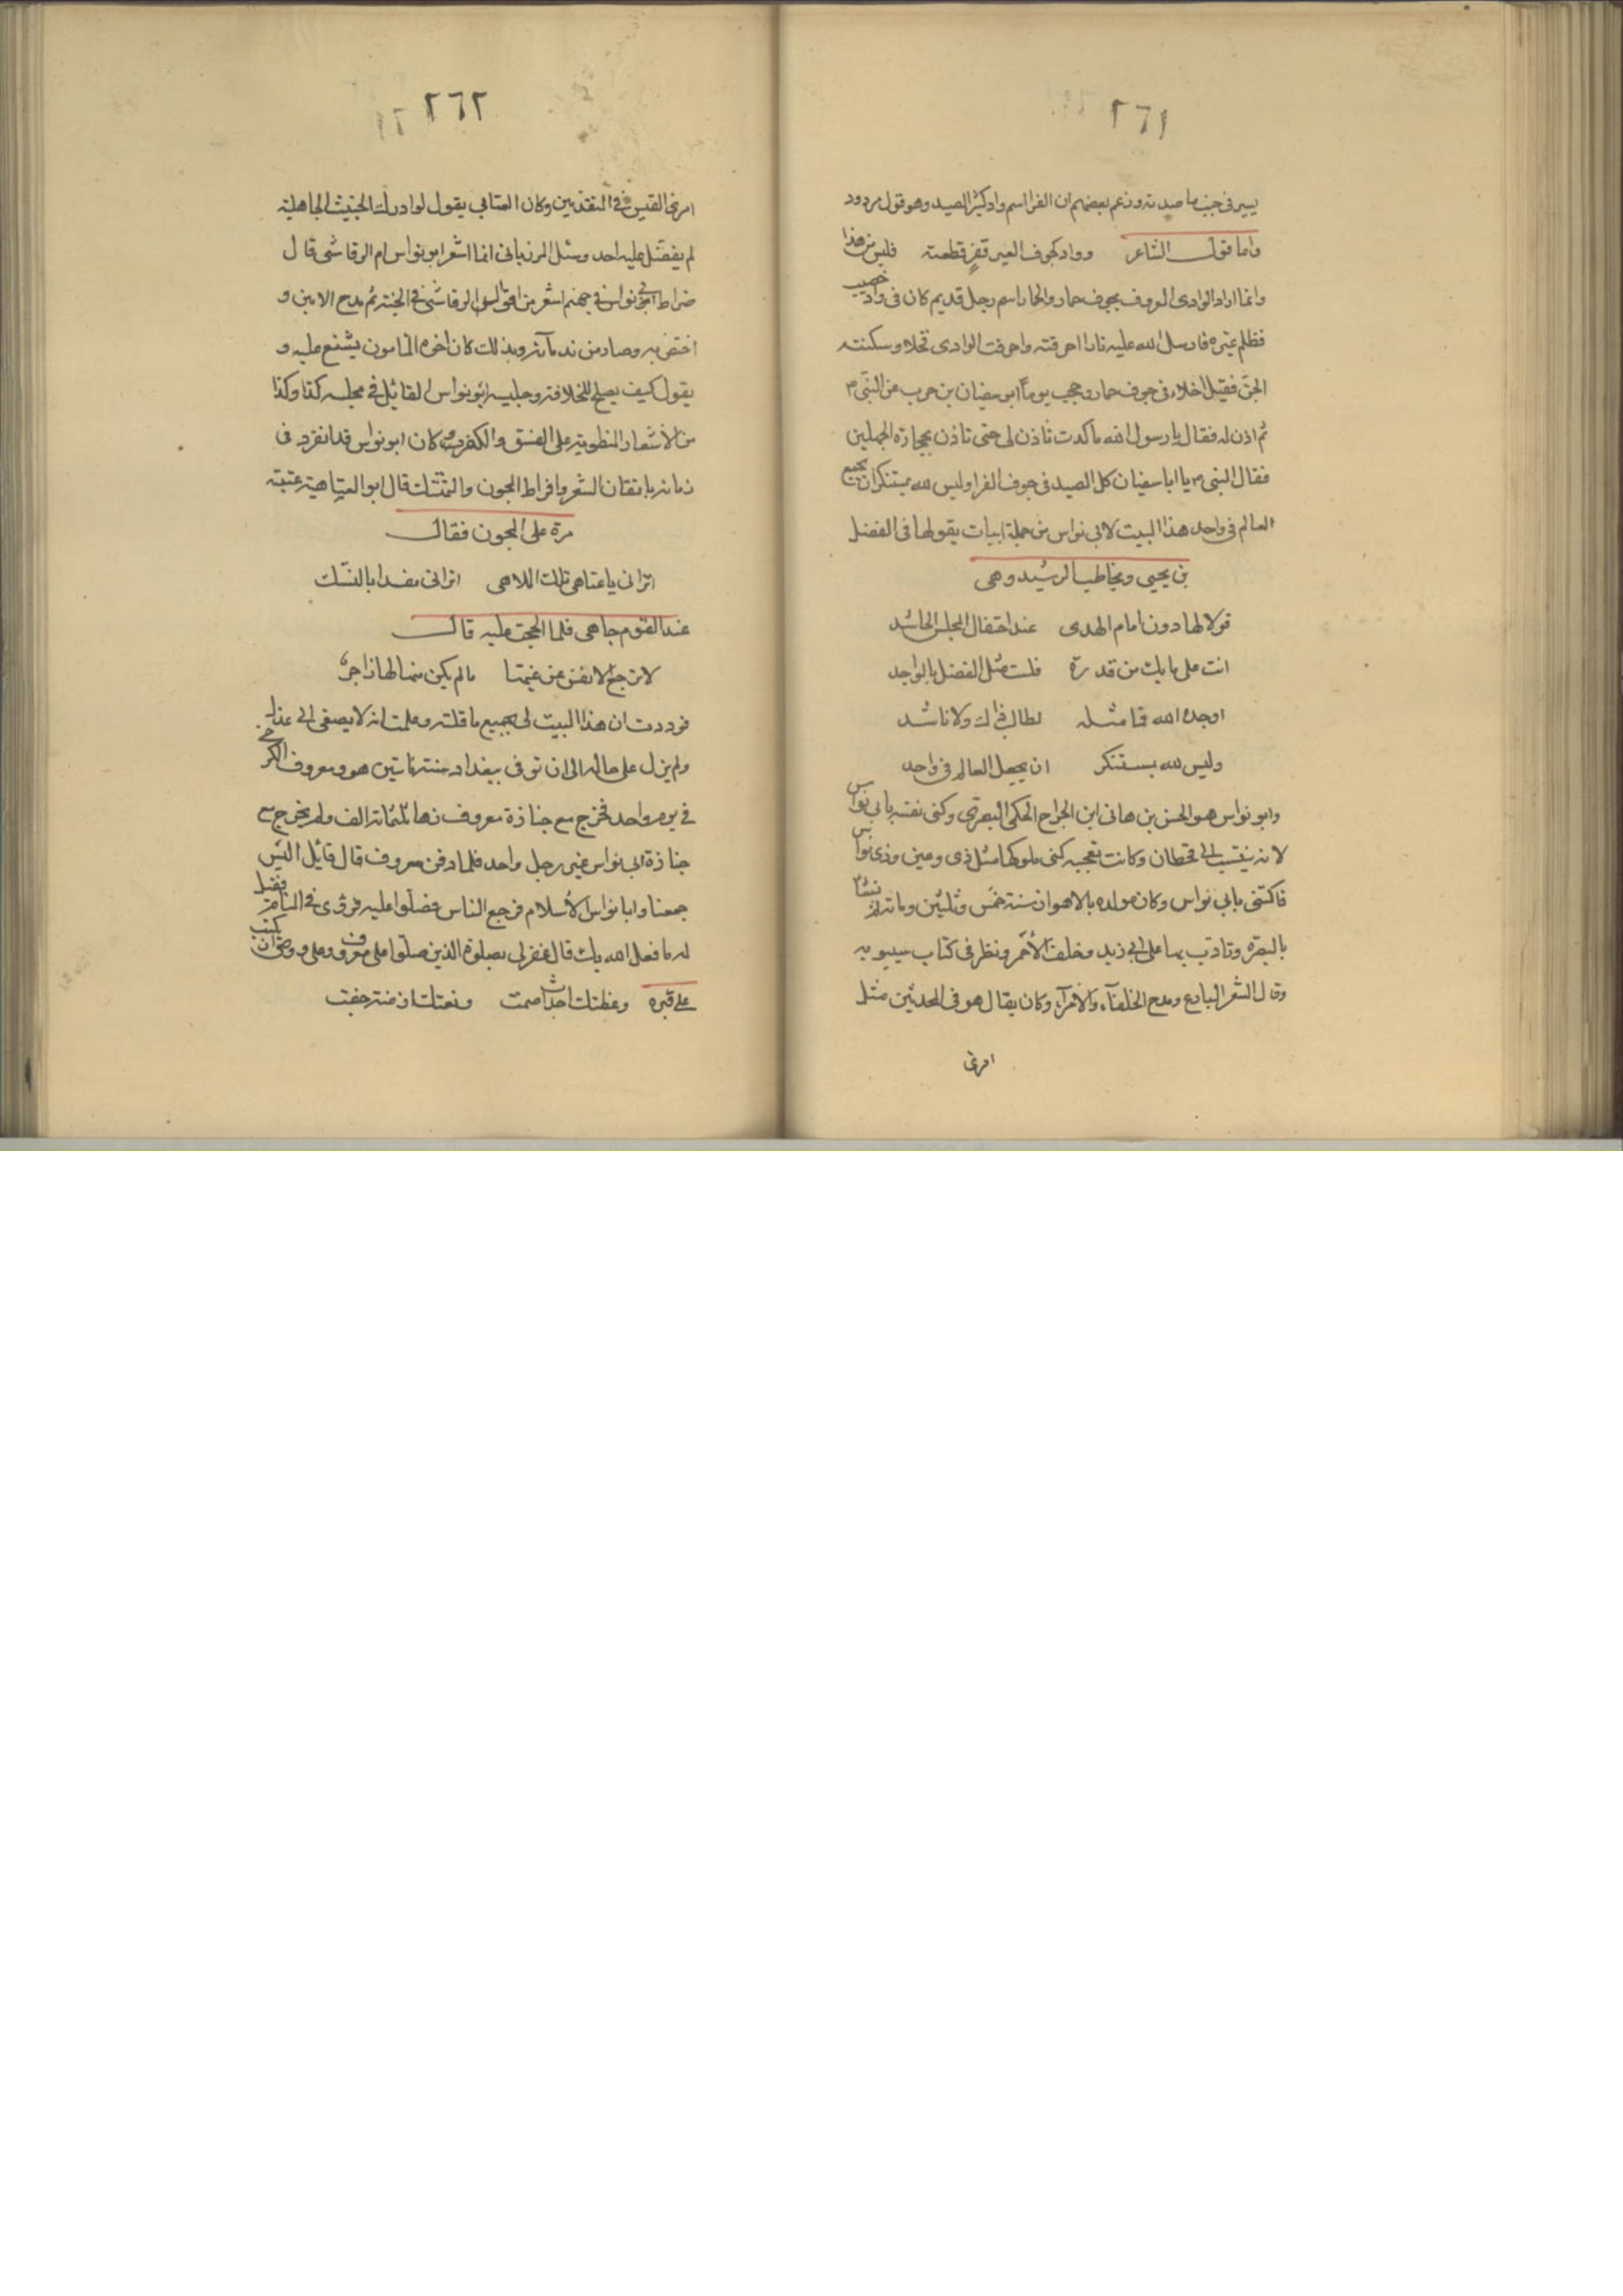 ٢٦١
يسير في جنب ما صدته وزعم بعضهم ان الفرا اسم واد كثير الصيد وهو قول مردود
واما قول الشاعر وواد كجوف العير قفر قطعته فليس من هذا
وانما اراد الوادى المعروف بجوف حمار والحمار اسم رجل قديم كان فى واد خصيب
فظلم عشيره فارسل الله عليه نارا احرقته واحرقت الوادى نخلا وسكنته
الجن فقيل اخلا من جوف حمار وحجب يوماً ابو سفيان بن حرب عن النبى م
ثم اذن له فقال يا رسول الله ما كدت تاذن لى حتى تاذن بحجارة الجهلين
فقال النبى م يا ابا سفيان كل الصيد فى جوف الفرا وليس لله بمستنكر ان يجمع
العالم فى واحد هذا البيت لابى نواس من جملة ابيات يقولها فى الفضل
بن يحيى ويخاطب الرشيد وهى
قولا لهادون امام الهدى عند احتفال المجلس الحاشد
انت على ما بك من قدرة فلست مثل الفضل بالواجد
اوجده الله فما مثله لطالب ذاك ولا ناشد
وليس لله بمستنكر ان يجعل العالم فى واحد
وابو نواس هو الحسن بن هانى ابن الجراح الحكمى البصرى وكنى نفسه بابى نواس
لانه ينتسب الى قحطان وكانت تعجبه كنى ملوكها مثل ذى رعين وذى نواس
فاكتنى بابى نواس وكان مولده بالاهواز سنة خمس وثلثين ومائة ثم نشا
بالبصرة وتادب بها على ابى زيد وخلف الأحمر ونظر فى كتاب سيبويه
وقال الشعر البارع ومدح الخلفآء والامرآء وكان يقال هو فى المحدثين مثل
امرئ
٢٦٢
امرئ القيس فى المتقدمين وكان العتابى يقول لو ادرك الخبيث الجاهلية
لم يفضل عليه احد وسئل المرزبانى ايما اشعر ابو نواس ام الرقاشى قال
ضراط ابى نواس فى جهنم اشعر من اقوال الرقاشى فى الجنة ثم مدح الامين و
اختص به وصار من ندمآئه وبذلك كان اخوه المامون يشنع عليه و
يقول كيف يصلح للخلافة وجليسه ابو نواس القائل فى مجلسه كذا وكذا
من الأشعار المنطوية على الفسق والكفر وكان ابو نواس قد انفرد فى
زمانه باتقان الشعر وافراط المجون والتهتك قال ابو العتاهية عتبته
مرة على المجون فقال
اترانى يا عتاهى تلك الملاهى اترانى مفسدا بالنسك
عند القوم جاهى فلما الححت عليه قال
لا ترجع الانفس عن غيتها ما لم يكن منها لها زاجر
فوددت ان هذا البيت لى بجميع ما قلته وعلمت انه لا يصغى الى عذل
ولم يزل على حاله الى ان توفى ببغداد سنة مائتين هو ومعروف الكرخى
فى يوم واحد فخرج مع جنازة معروف زها ثلثمائة الف ولم يخرج مع
جنازة ابى نواس غير رجل واحد فلما دفن معروف قال قائل اليس
جمعنا وابا نواس الأسلام فرجع الناس فصلوا عليه فرؤى فى المنام فقيل
له ما فعل الله بك قال غفر لى بصلوة الذين صلوا على معروف وعلى واوصى ان يكتب
على قبره وعظتك اجداث صمت ونعتك ازمنة خفت